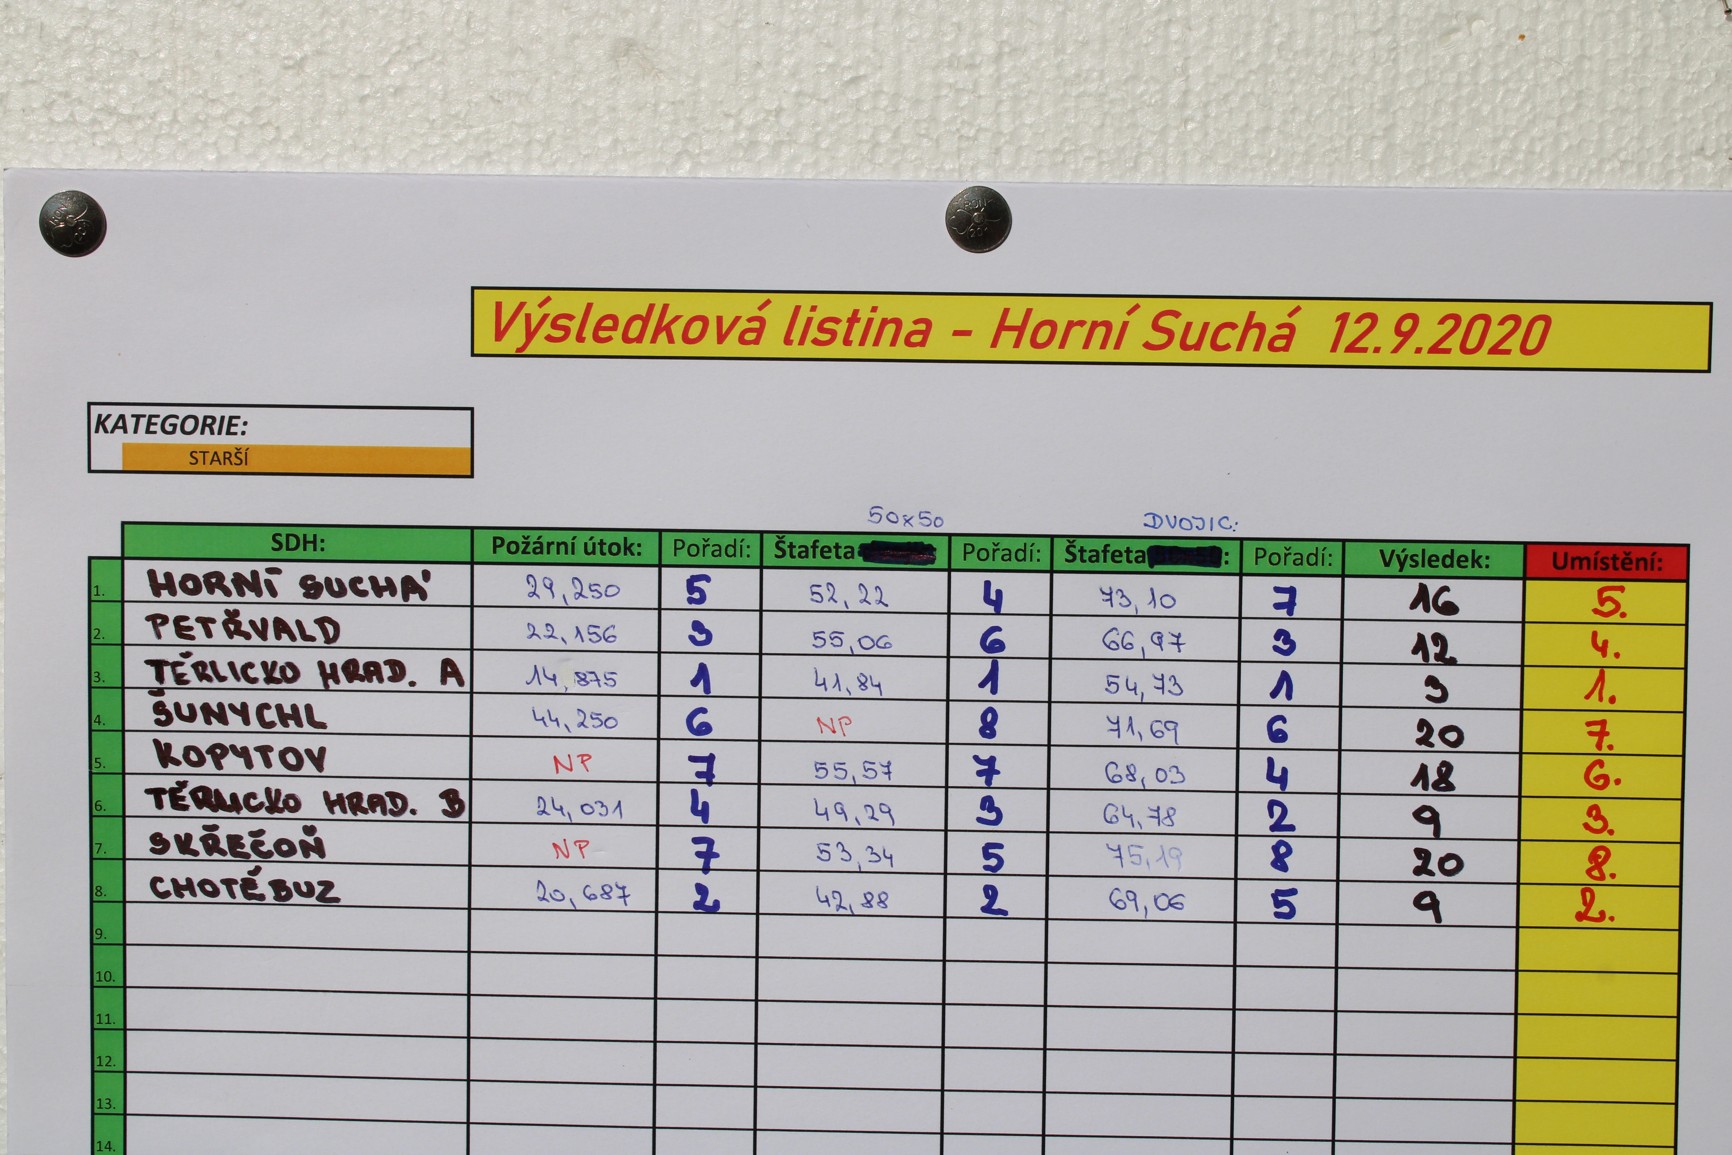 Výsledková listina - Horní Suchá 12.9.2020
KATEGORIE:
STARŠÍ
50x50 DVOJIC:
SDH: Požární útok: Pořadí: Štafeta Pořadí: Štafeta : Pořadí: Výsledek: Umístění:
1. HORNÍ SUCHÁ 29,250 5 52,22 4 73,10 7 16 5.
2. PETŘVALD 22,156 3 55,06 6 66,97 3 12 4.
3. TĚRLICKO HRAD. A 14,875 1 41,84 1 54,73 1 3 1.
4. ŠUNYCHL 44,250 6 NP 8 71,69 6 20 7.
5. KOPYTOV NP 7 55,57 7 68,03 4 18 6.
6. TĚRLICKO HRAD. B 24,031 4 49,29 3 64,78 2 9 3.
7. SKŘEČOŇ NP 7 53,34 5 75,19 8 20 8.
8. CHOTĚBUZ 20,687 2 42,88 2 69,06 5 9 2.
9.
10.
11.
12.
13.
14.